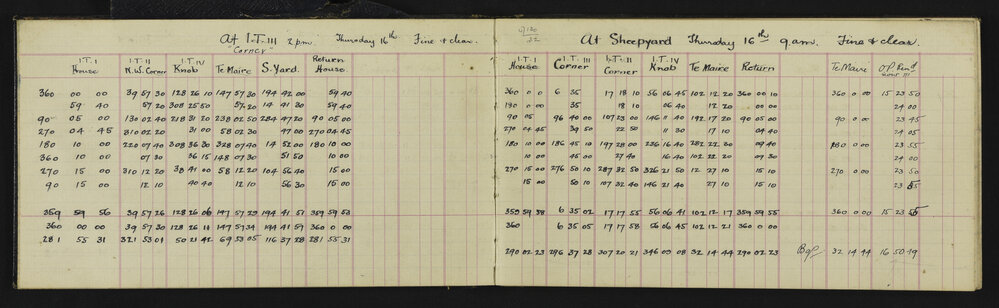 At I.T. III 2 pm. Thursday 16th Fine & clear.
"Corner"
I.T. I House I.T. II N.W. Corner I.T. IV Knob Te Maire S. Yard. Return House
360 00 00 39 57 30 128 26 10 147 57 30 194 42 00 59 40
59 40 57 20 308 25 50 57 20 14 41 30 59 40
90 05 00 130 02 40 218 31 20 238 02 50 284 47 20 90 05 00
270 04 45 310 02 20 31 00 58 02 30 47 00 270 04 45
180 10 00 220 07 40 308 36 30 328 07 40 14 52 00 180 10 00
360 10 00 07 30 36 15 148 07 30 51 50 10 00
270 15 00 310 12 20 38 41 00 58 12 20 104 56 40 15 00
90 15 00 12 10 40 40 12 10 56 30 15 00
359 59 56 39 57 26 128 26 06 147 57 29 194 41 57 359 59 53
360 00 00 39 57 30 128 26 10 147 57 34 194 41 57 360 0 00
281 55 31 321 53 01 50 21 42 69 53 05 116 37 28 281 55 31
At Sheepyard Thursday 16th 9 am. Fine & clear.
I.T. I House I.T. III Corner I.T. II Corner I.T. IV Knob Te Maire Return Te Maire
360 0 0 6 35 17 18 10 56 06 45 102 12 20 360 00 10 360 0 00 15 23 50
180 0 00 35 18 10 06 40 12 20 00 00 24 00
90 05 96 40 00 107 23 00 146 11 40 192 17 20 90 05 10 90 0 00 23 45
270 04 45 39 50 22 50 11 30 17 10 04 40 24 05
180 10 00 186 45 10 197 28 00 236 16 40 282 22 30 09 40 180 0 00 23 55
10 00 45 00 27 40 16 40 102 22 20 07 30 24 00
270 15 00 276 50 10 287 32 50 326 21 50 12 27 10 15 10 270 0 00 23 50
15 00 50 10 107 32 40 146 21 40 27 10 15 10 23 45
359 59 58 6 35 02 17 17 55 56 06 41 102 12 17 359 59 55 360 0 00 15 23 55
360 6 35 05 17 17 58 56 06 45 102 12 21 360 0 00
290 02 23 296 37 28 307 20 21 346 09 08 32 14 44 290 02 23 32 14 44 16 50 49